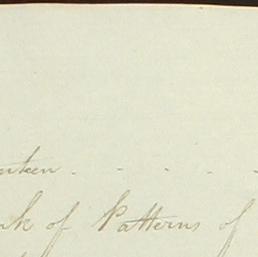 nteen - - - -
nk of Patterns of